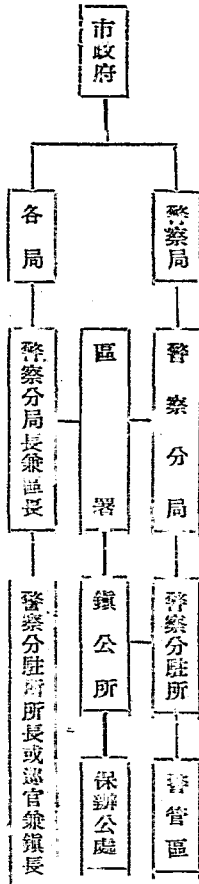 市政府
警察局
各局
警察分局
區署
警察分局長兼區長
警察分駐所
鎮公所
警察分駐所所長或巡官兼鎮長
警管區
保辦公處